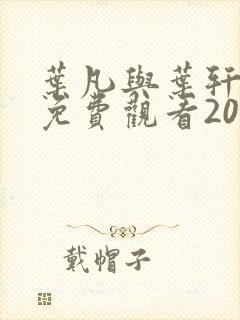 葉凡與葉軒
免費觀看20
戴帽子